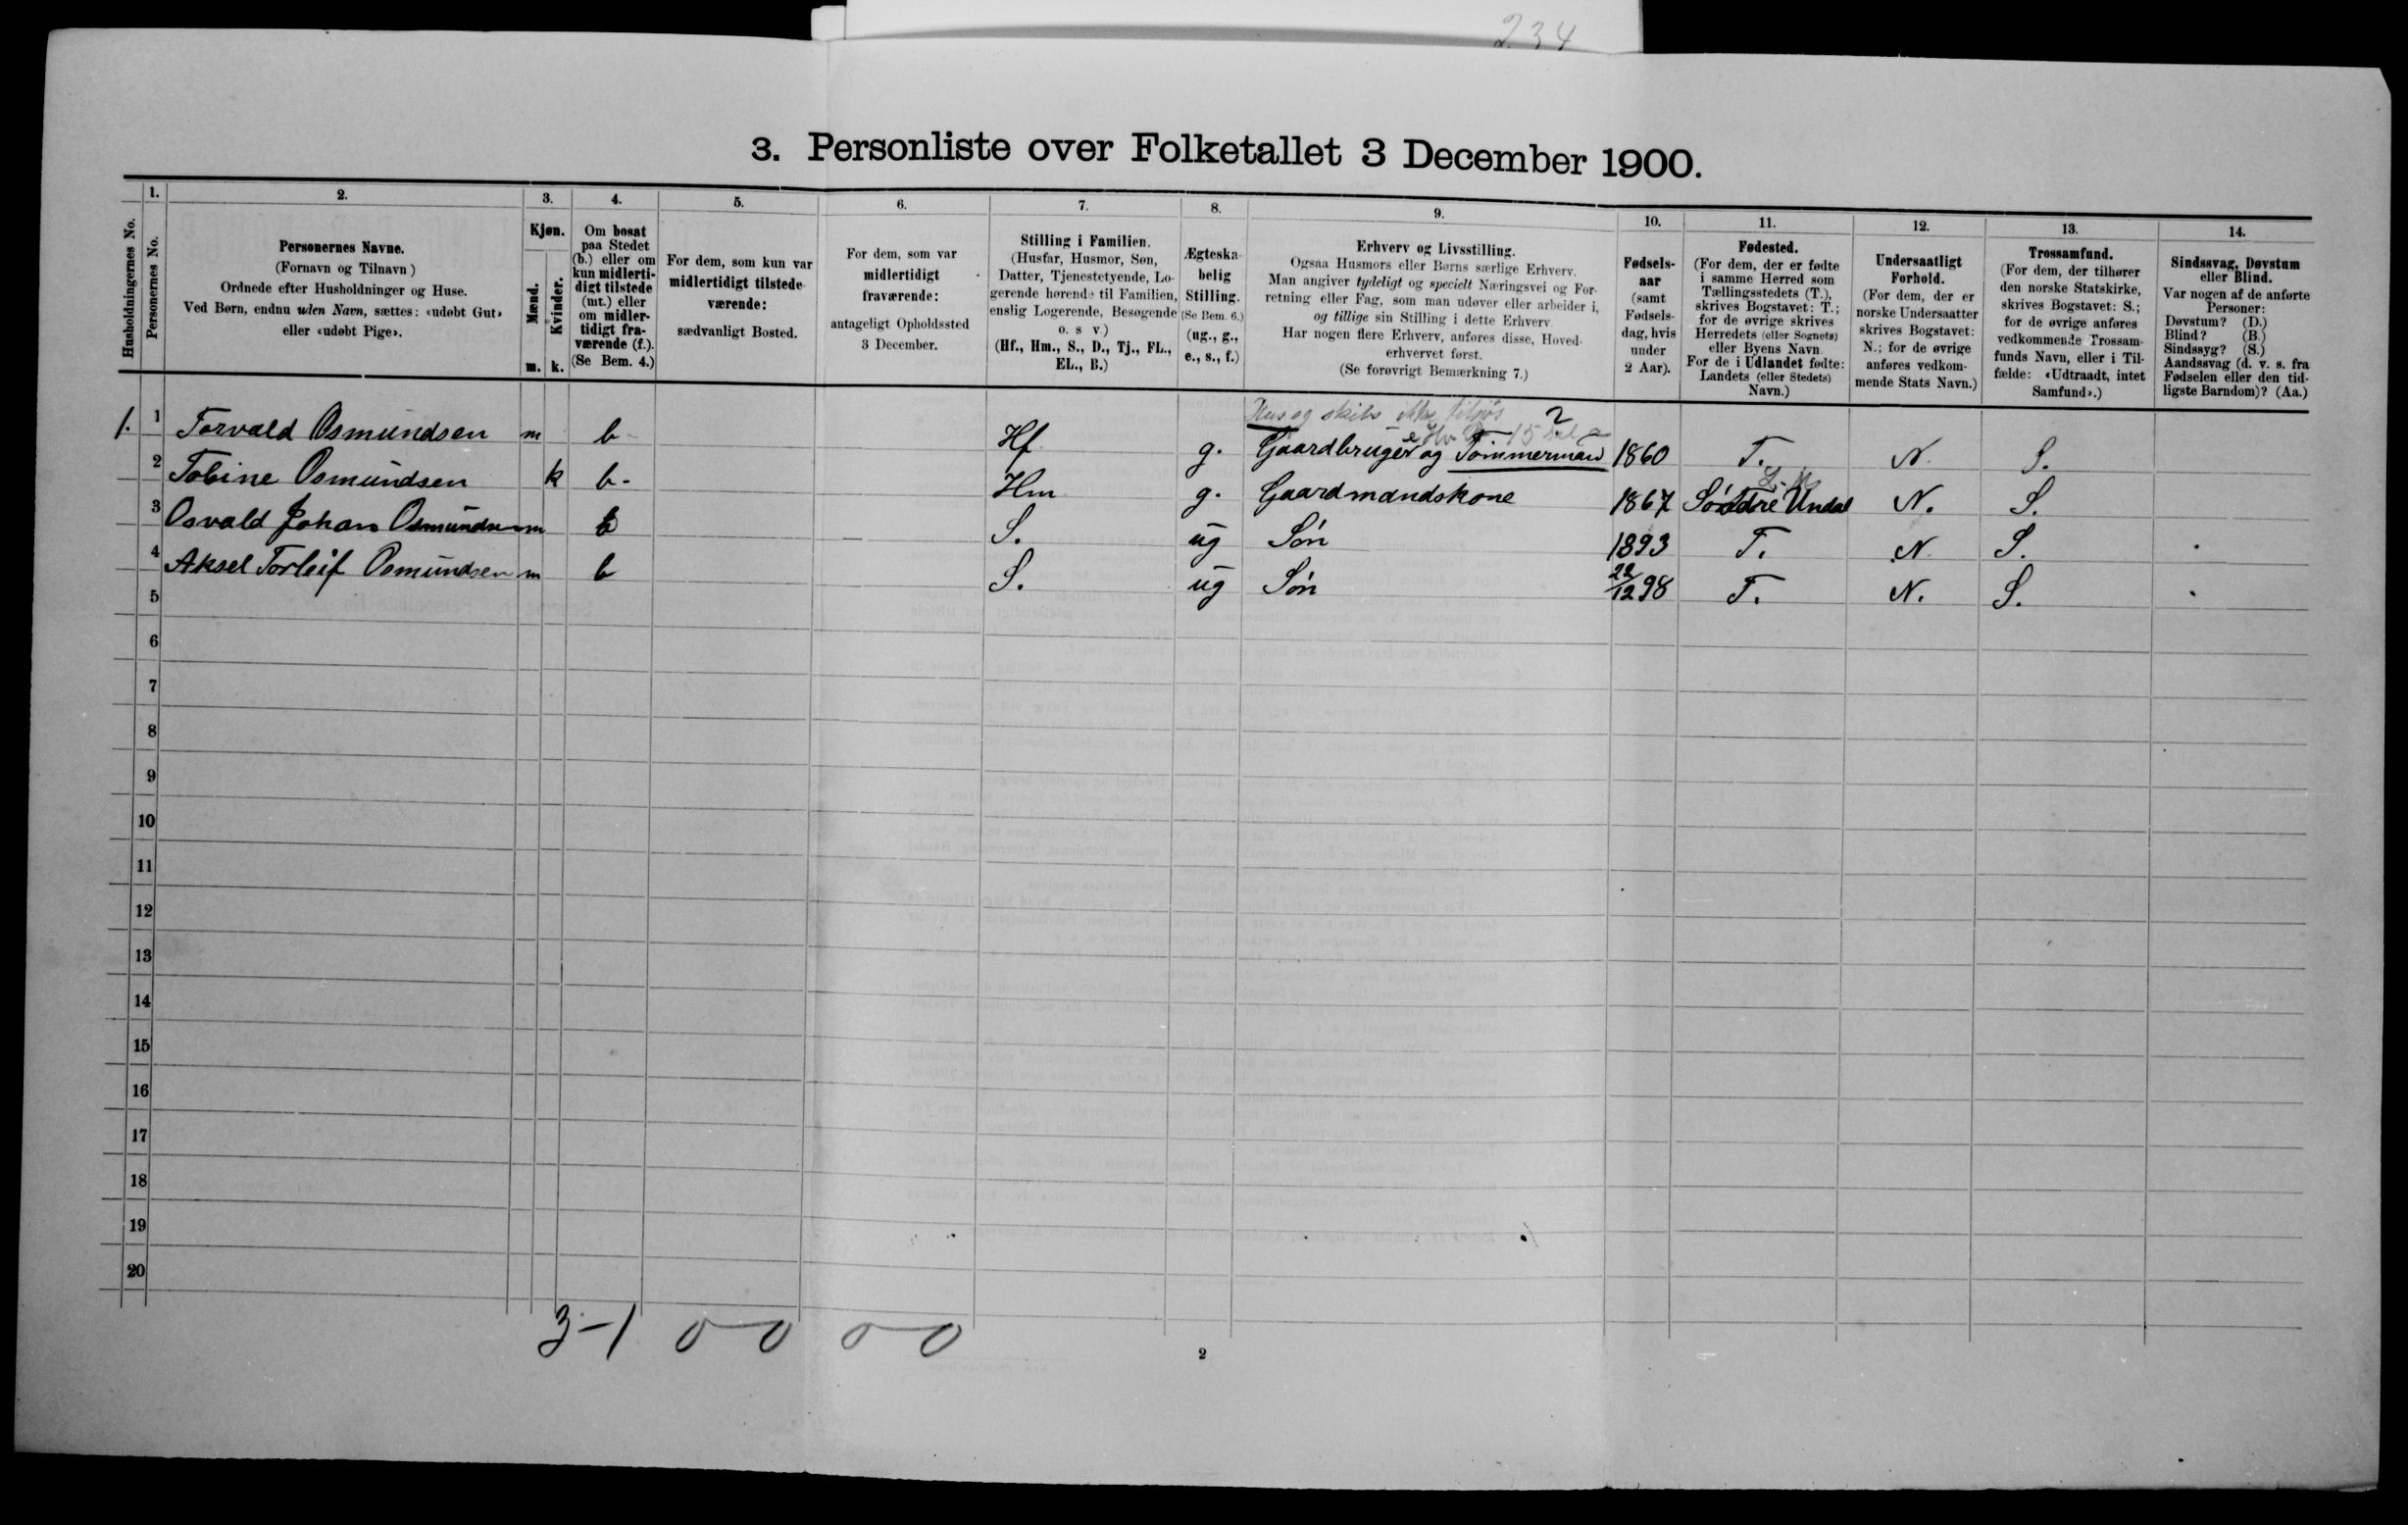 234
3. Personliste over Folketallet 3 December 1900.
Husholdningernes No.
1.
Personernes No.
2.
Personernes Navne.
(Fornavn og Tilnavn)
Ordnede efter Husholdninger og Huse.
Ved Børn, endnu uden Navn, sættes: «udøbt Gut»
eller «udøbt Pige».
3.
Kjøn.
Mænd.
Kvinder.
m. k.
4.
Om bosat
paa Stedet
(b.) eller om
kun midlerti-
digt tilstede
(mt.) eller
om midler-
tidigt fra-
værende (f.).
(Se Bem. 4.)
5.
For dem, som kun var
midlertidigt tilstede-
værende:
sædvanligt Bosted.
6.
For dem, som var
midlertidigt
fraværende:
antageligt Opholdssted
3 December.
7.
Stilling i Familien.
(Husfar, Husmor, Søn,
Datter, Tjenestetyende, Lo-
gerende hørende til Familien,
enslig Logerende, Besøgende
o. s v.)
(Hf., Hm., S., D., Tj., FL.,
EL., B.)
8.
Ægteska-
belig
Stilling.
(Se Bem. 6.)
(ug., g.,
e., s., f.)
9.
Erhverv og Livsstilling.
Ogsaa Husmors eller Børns særlige Erhverv.
Man angiver tydeligt og specielt Næringsvei og For-
retning eller Fag, som man udøver eller arbeider i,
og tillige sin Stilling i dette Erhverv.
Har nogen flere Erhverv, anføres disse, Hoved-
erhvervet først.
(Se forøvrigt Bemærkning 7.)
10.
Fødsels-
aar
(samt
Fødsels-
dag, hvis
under
2 Aar).
11.
Fødested.
(For dem, der er fødte
i samme Herred som
Tællingsstedets (T.),
skrives Bogstavet: T.;
for de øvrige skrives
Herredets (eller Sognets)
eller Byens Navn.
For de i Udlandet fødte:
Landets (eller Stedets)
Navn.)
12.
Undersaatligt
Forhold.
(For dem, der er
norske Undersaatter
skrives Bogstavet:
N.; for de øvrige
anføres vedkom-
mende Stats Navn.)
13.
Trossamfund.
(For dem, der tilhører
den norske Statskirke,
skrives Bogstavet: S.;
for de øvrige anføres
vedkommende Trossam-
funds Navn, eller i Til-
fælde: «Udtraadt, intet
Samfund».)
14.
Sindssvag, Døvstum
eller Blind.
Var nogen af de anførte
Personer:
Døvstum? (D.)
Blind? (B.)
Sindssyg? (S.)
Aandssvag (d. v. s. fra
Fødselen eller den tid-
ligste Barndom)? (Aa.)
Hus og skibs 2
1. 1 Torvald Osmundsen m b Hf g. Gaardbruger og Tømmermand 1860 T. N. S.
2 Tobine Osmundsen k b. Hm g. Gaardmandskone 1867 Søndre Undal N. S.
3 Osvald Johan Osmundsen m b S. ug Søn 1893 T. N S.
4 Aksel Torleif Osmundsen m b S. ug Søn 22/12 98 T. N. S.
5
6
7
8
9
10
11
12
13
14
15
16
17
18
19
20
3-1 0-0 0-0
2